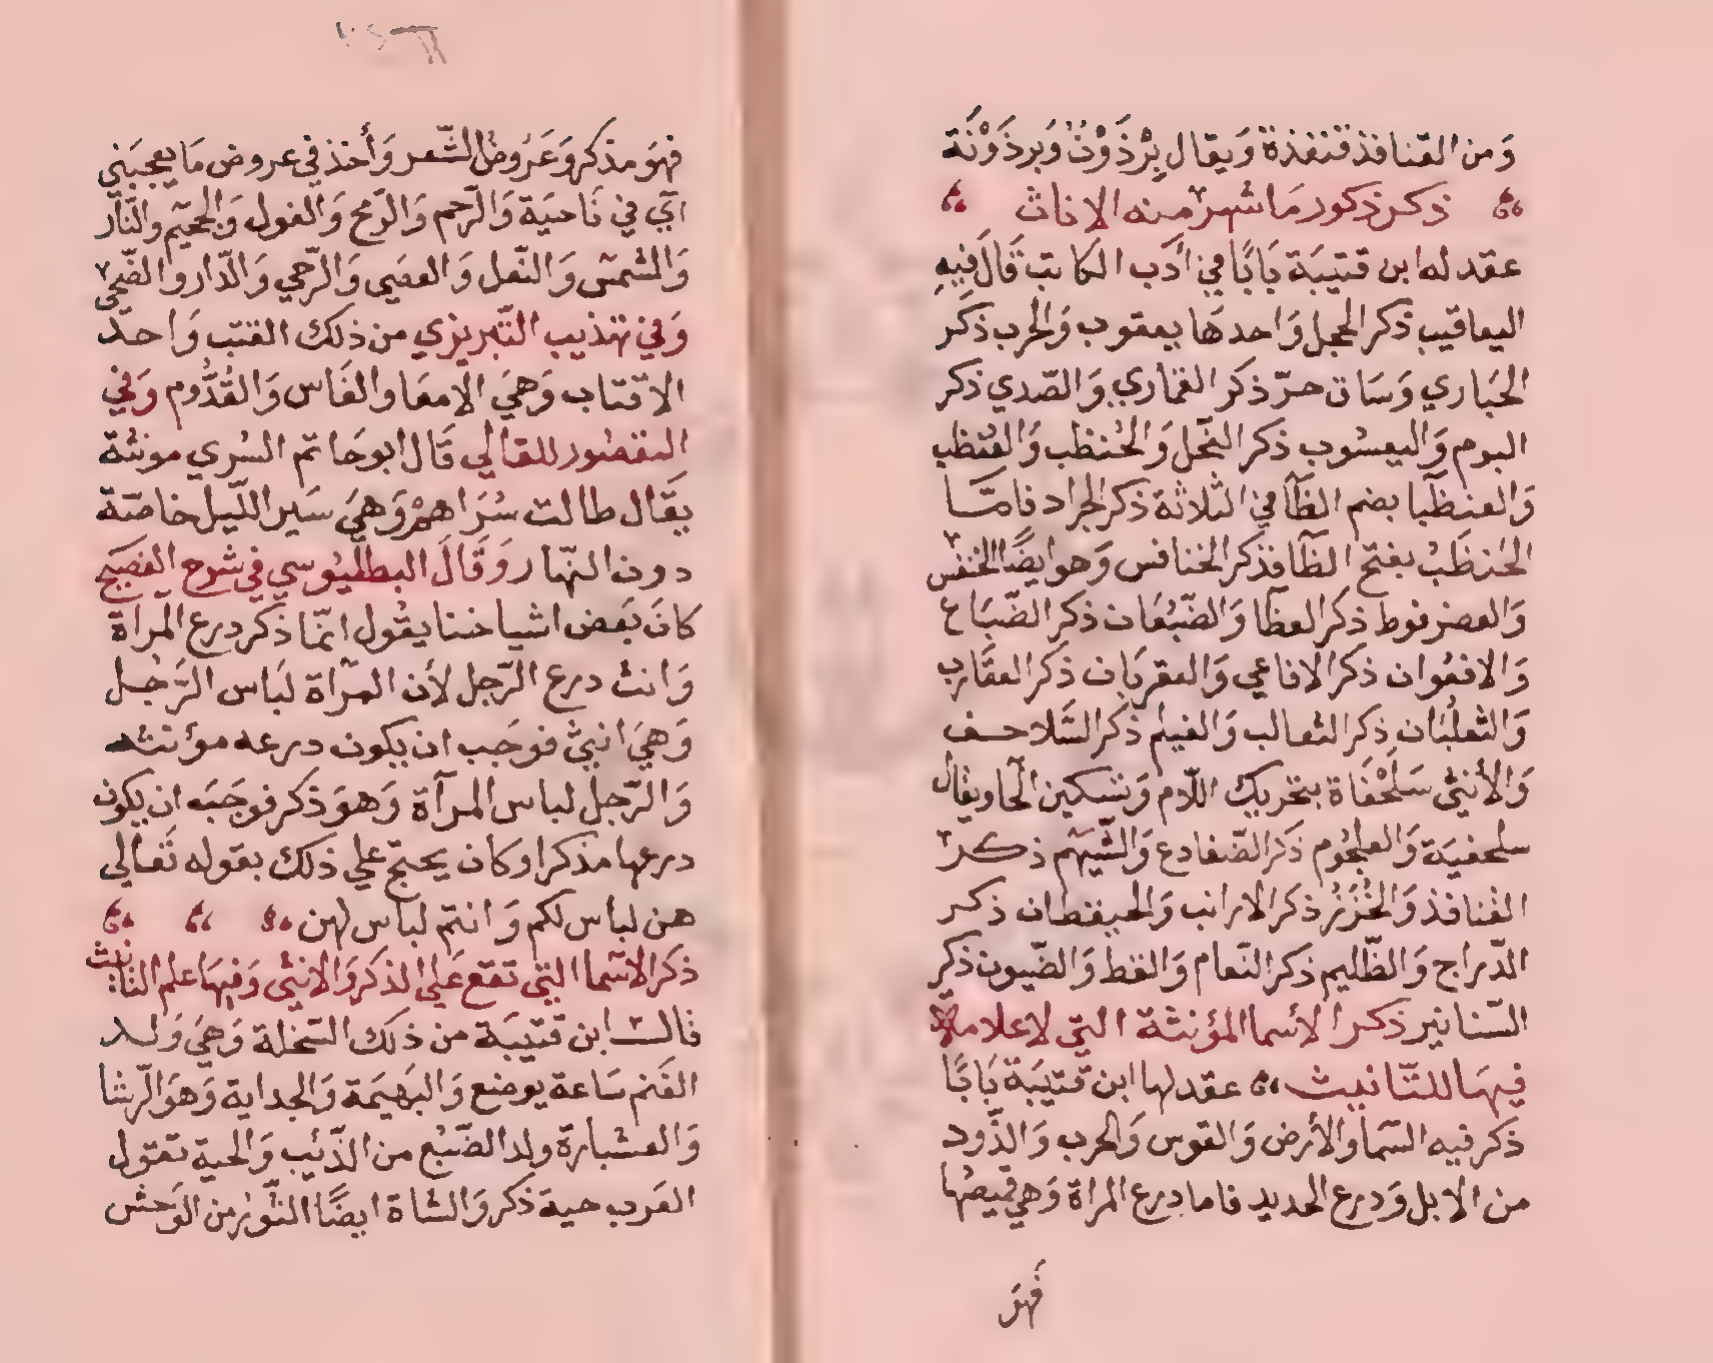 وَمن القنافذ قنفذة وَيقال بِرْذَوْنٌ وَبرذَوْنَة
ذكر ذكور مَا شهر منه الاناث
عقد له ابن قتيبَة بَابًا في أدَب الكاتب قَالَ فِيهِ
اليعاقيب ذكر الحجل وَاحدهَا يعقوب وَالخرب ذكَر
الحبَاري وَسَاق حرّ ذكَر القماري وَالصّدي ذكر
البوم وَاليعسُوب ذكر النحل وَالحُنظب وَالعُنظب
وَالعنظبا بضم الظا في الثلاثة ذكر الجراد فامّا
الحُنظَبُ بفتح الظا فذكر الخنافس وَهو ايضًا الخنفس
وَالعضرفوط ذكر العظا وَالضّبْعَان ذكر الضّبَاع
وَالافعُوان ذكر الافاعي وَالعقربَان ذكَر العقَارب
وَالثعلبَان ذكر الثعالب وَالغيلم ذكَر السَّلاحف
وَالأنثى سَلَحْفَاة بتحريك اللّام وَتسكين الحا ويقال
سلحفيَة وَالعلجُوم ذكر الضّفادع وَالشّيهم ذكر
القنافذ وَالخُزَزُ ذكر الارانب وَالحيقطان ذكر
الدّراج وَالظّليم ذكر النّعام وَالقط وَالضّيون ذكر
السّنانير ذكر الأسما المؤنثة التي لا علامة
فيهَا للتّانيث عقد لها ابن قتيبَة بَابًا
ذكر فيه السّما والأرض وَالقوس وَالحرب وَالذّود
من الابل وَدرع الحديد فاما درع المراة وَهي قميصُها
فَهوَ
فهوَ مذكر وَعَرُوضُ الشّعر وَأخذ في عروض مَا يعجبَني
اي في نَاحيَة وَالرّحم وَالرّمح وَالغول وَالجحيم والنّار
وَالشمس وَالنّعل وَالعصَي وَالرّحي وَالدّار والضّحى
وَفي تهذيب التّبريزي من ذلك القتب وَاحد
الاقتاب وَهيَ الامعَا والفَاس وَالقُدُّوم وَفي
المقصُور للقالي قَال ابو حَاتم السُري مونثة
يقَال طالت سُرَاهمْ وَهيَ سَير اللّيل خاصّة
دون النّهار وَقَالَ البطليُوسي في شرح الفصيَح
كانَ بَعض اشياخنا يقُول انمّا ذكر درع المراة
وَانث درع الرّجل لأن المرّاة لبَاس الرَّجُل
وَهيَ انثيْ فوجَب ان يكون درعه مؤنثه
وَالرّجل لباس المرآة وَهوَ ذكر فوجَبَه ان يكون
درعها مذكرا وكان يحتجّ علي ذلك بقوله تَعالي
هن لباس لكم وَانتم لباس لهن
ذكر الاسما التي تقع عَلي الذكر وَالانثي وَفيهَا علم التانيث
قالـ ابن قتيبَة من ذلك السّخلة وَهيَ وَلد
الغَنم سَاعة يوضع وَالبَهيَمة وَالجداية وَهوَ الرّشا
وَالعسْبارة ولد الضّبُع من الذّئيب وَالحية تقول
العَرب حية ذكر وَالشاة ايضًا الثّورُ من الوَحش